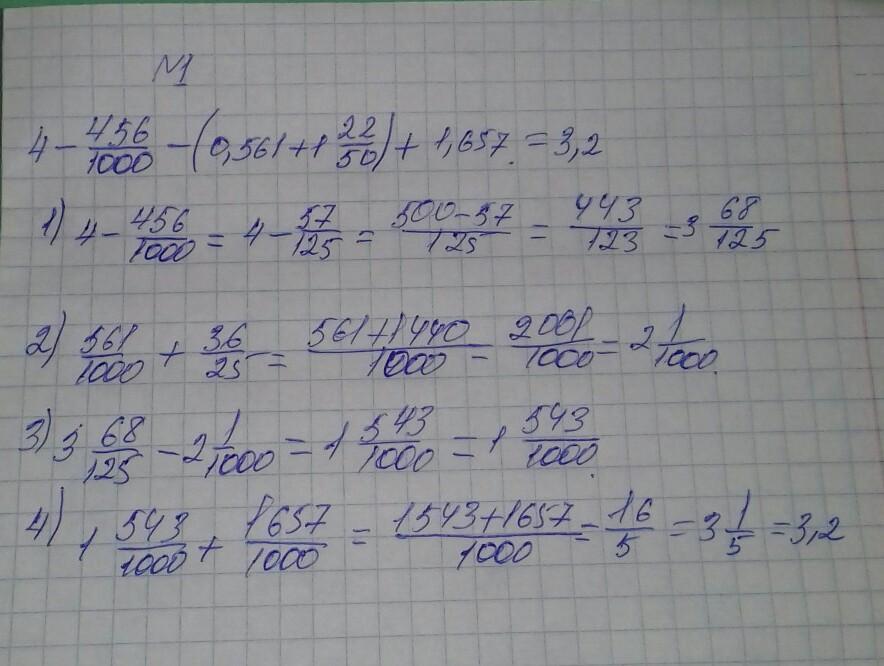 №1
4 - 456/1000 - (0,561 + 1 22/50) + 1,657. = 3,2
1) 4 - 456/1000 = 4 - 57/125 = 500-57/125 = 443/123 = 3 68/125
2) 561/1000 + 36/25 = 561+1440/1000 = 2001/1000 = 2 1/1000.
3) 3 68/125 - 2 1/1000 = 1 543/1000 = 1 543/1000.
4) 1 543/1000 + 1657/1000 = 1543+1657/1000 = 16/5 = 3 1/5 = 3,2